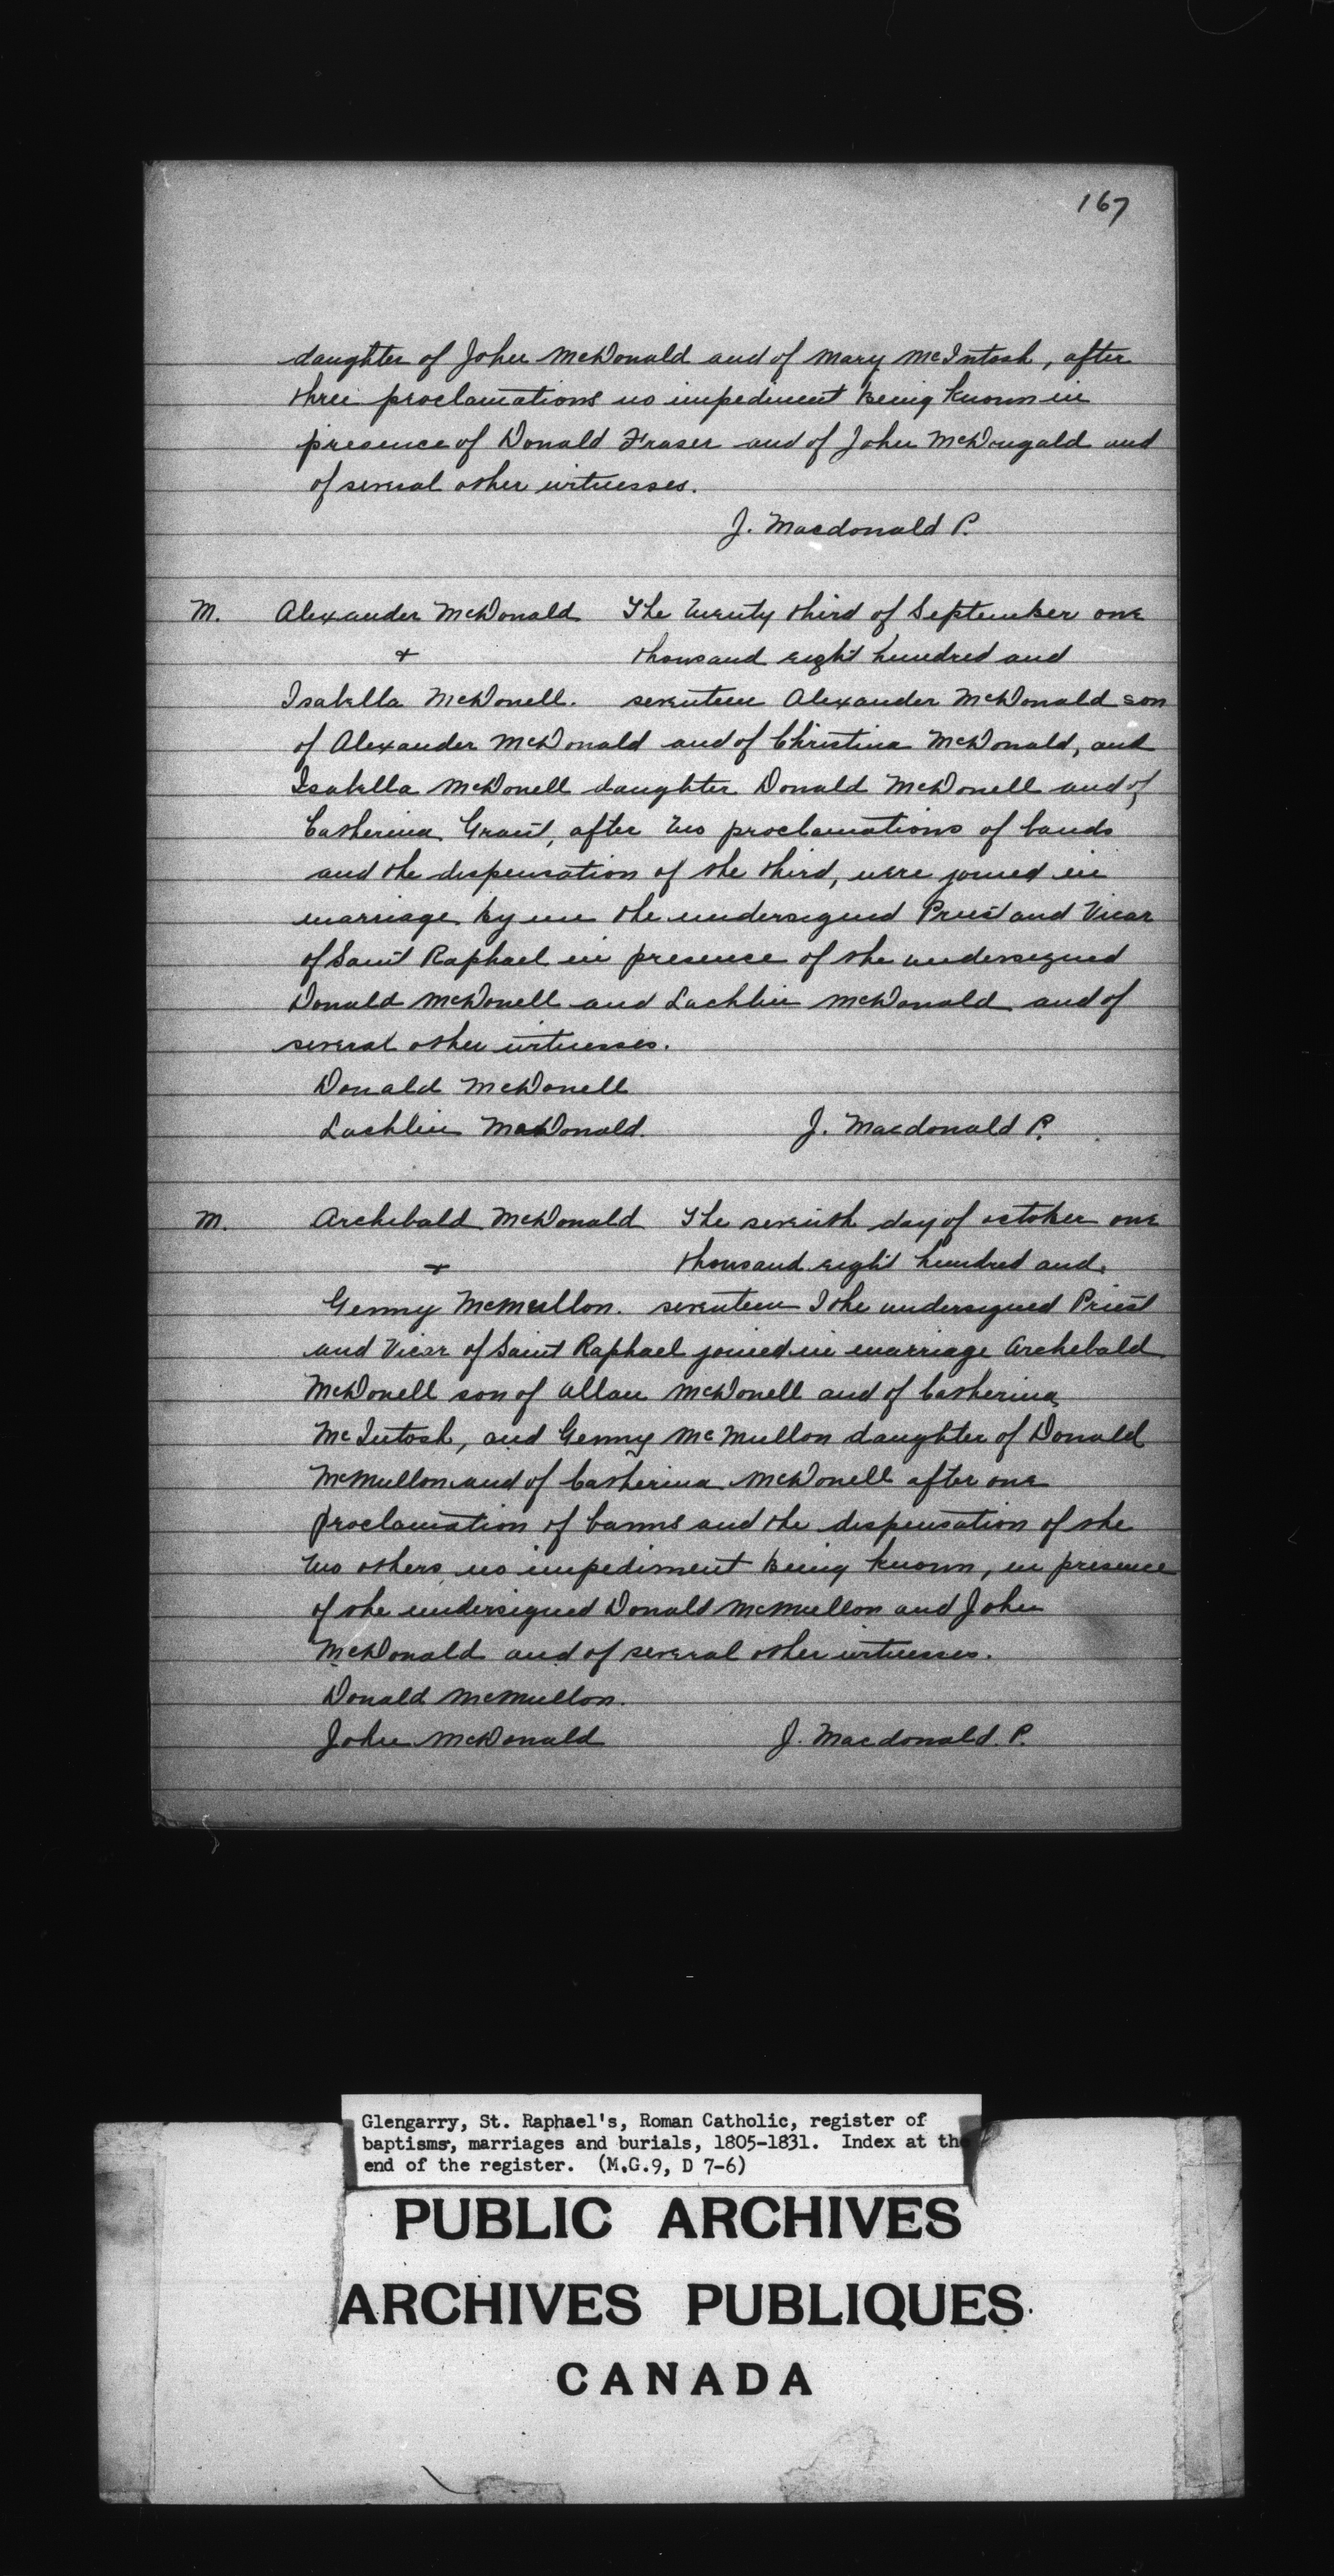 167
daughter of John McDonald and of Mary McIntosh, after
three proclamations no impediment being known in
presence of Donald Fraser and of John McDougald and
of several other witnesses.
J. Macdonald P.
M. Alexander McDonald The twenty third of September one
+ thousand eight hundred and
Isabella McDonell. seventeen Alexander McDonald son
of Alexander McDonald and of Christina McDonald, and
Isabella McDonell daughter Donald McDonell and of
Catherina Grant, after two proclamations of bands
and the dispensation of the third, were joined in
marriage by me the undersigned Priest and Vicar
of Saint Raphael in presence of the undersigned
Donald McDonell and Lachlin McDonald and of
several other witnesses.
Donald McDonell
Lachlin McDonald. J. Macdonald P.
M. Archibald McDonald The seventh day of october one
+ thousand eight hundred and
Genny McMullon. seventeen I the undersigned Priest
and Vicar of Saint Raphael joined in marriage Archebald
McDonell son of Allan McDonell and of Catherina
McIntosh, and Genny McMullon daughter of Donald
McMullon and of Catherina McDonell after one
proclamation of banns and the dispensation of the
two others no impediment being known, in presence
of the undersigned Donald McMullon and John
McDonald and of several other witnesses.
Donald McMullon.
John McDonald J. Macdonald. P.
Glengarry, St. Raphael's, Roman Catholic, register of
baptisms, marriages and burials, 1805-1831. Index at the
end of the register. (M.G.9, D 7-6)
PUBLIC ARCHIVES
ARCHIVES PUBLIQUES
CANADA